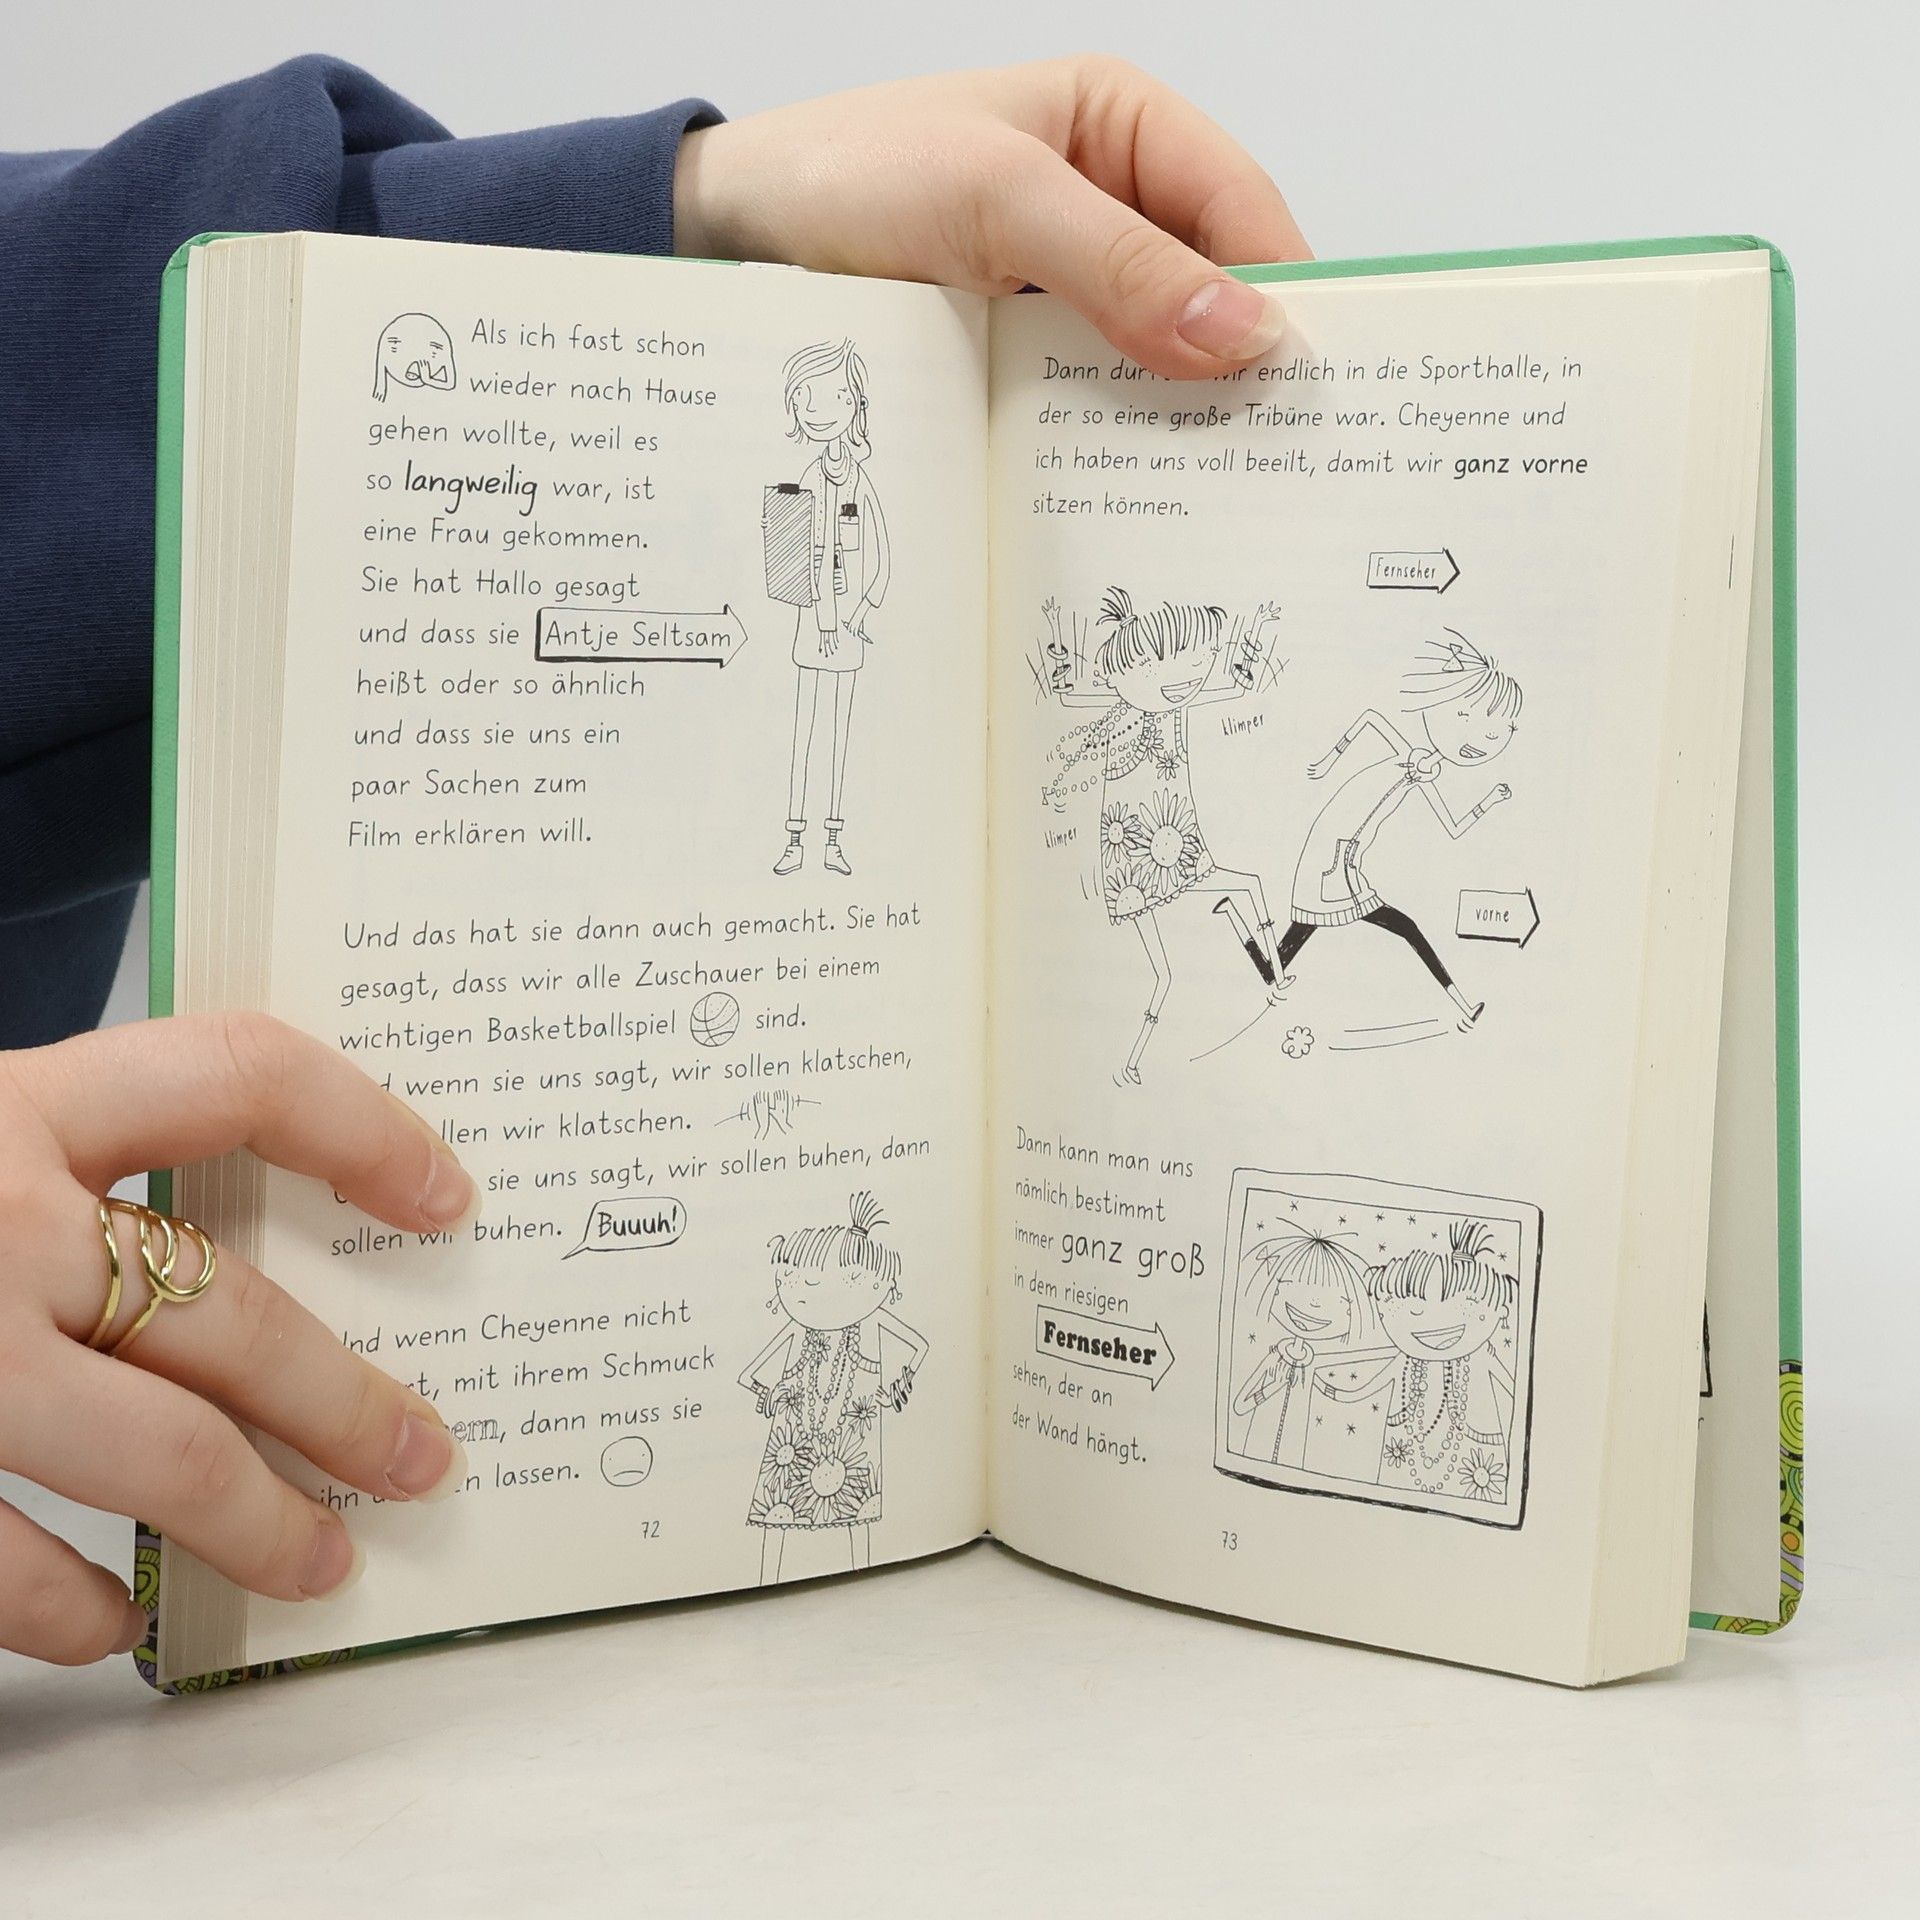 Als ich fast schon
wieder nach Hause
gehen wollte, weil es
so langweilig war, ist
eine Frau gekommen.
Sie hat Hallo gesagt
und dass sie Antje Seltsam
heißt oder so ähnlich
und dass sie uns ein
paar Sachen zum
Film erklären will.
Und das hat sie dann auch gemacht. Sie hat
gesagt, dass wir alle Zuschauer bei einem
wichtigen Basketballspiel sind.
wenn sie uns sagt, wir sollen klatschen,
wir klatschen.
sie uns sagt, wir sollen buhen, dann
sollen wir buhen. Buuuh!
wenn Cheyenne nicht
mit ihrem Schmuck
dann muss sie
ihn lassen.
72
Dann endlich in die Sporthalle, in
der so eine große Tribüne war. Cheyenne und
ich haben uns voll beeilt, damit wir ganz vorne
sitzen können.
Fernseher
klimper
klimper
vorne
Dann kann man uns
nämlich bestimmt
immer ganz groß
in dem riesigen
Fernseher
sehen, der an
der Wand hängt.
73